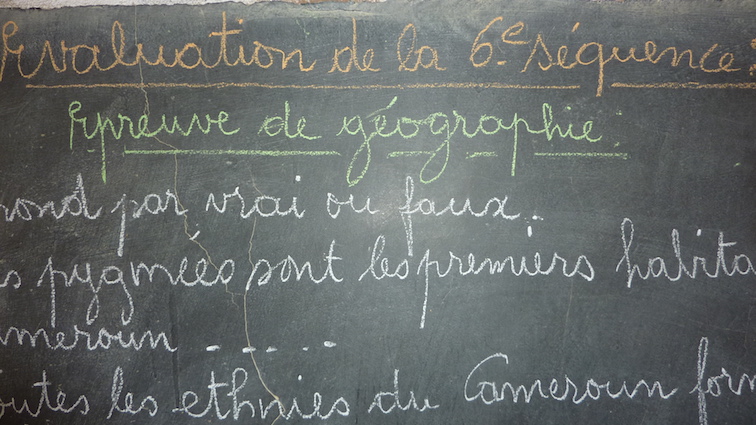 Evaluation de la 6.e séquence:
Epreuve de géographie:
pond par vrai ou faux..
s pygmées sont les premiers habita
meroun .. - .. - .
outes les ethnies du Cameroun form